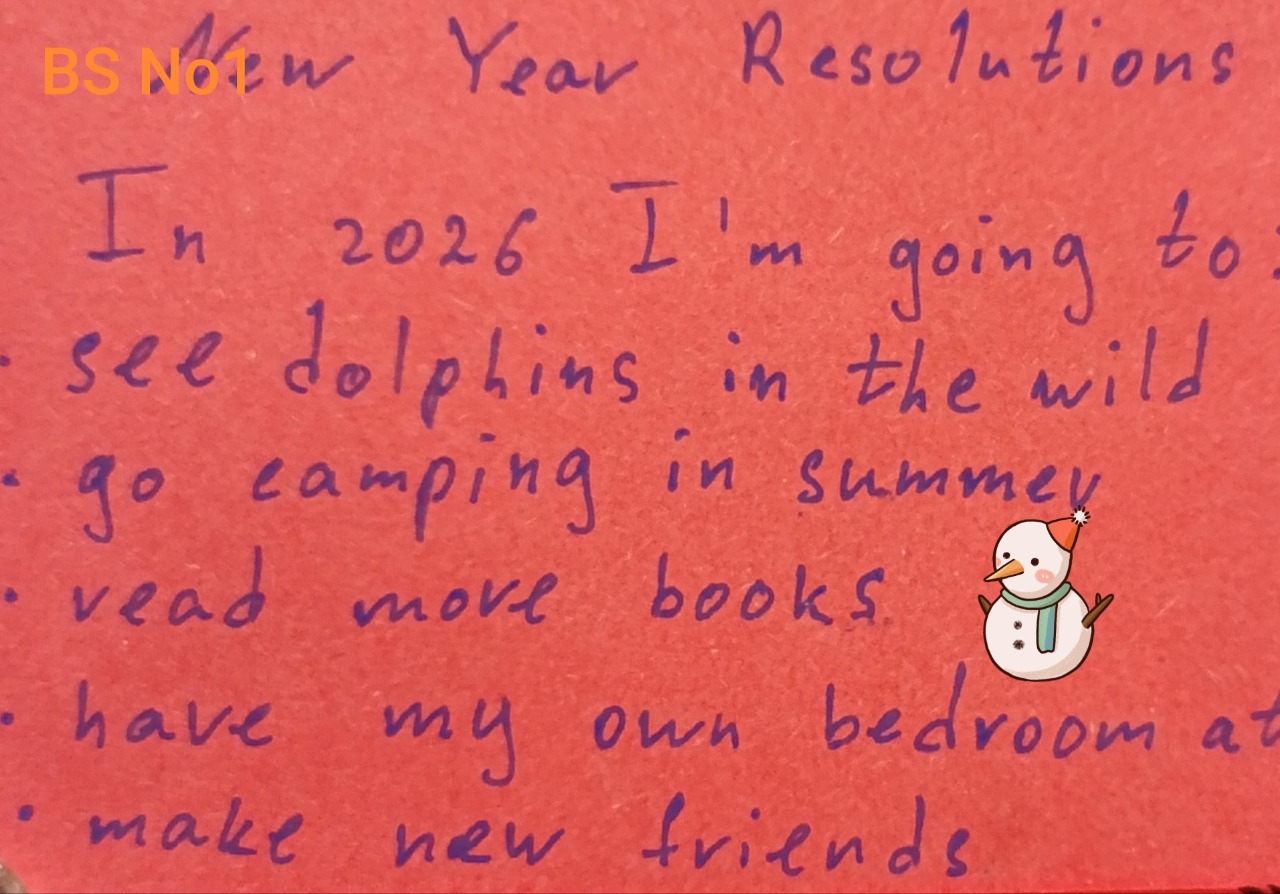 BS No1
New Year Resolutions
In 2026 I'm going to:
• see dolphins in the wild
• go camping in summer
• read more books
• have my own bedroom at
• make new friends